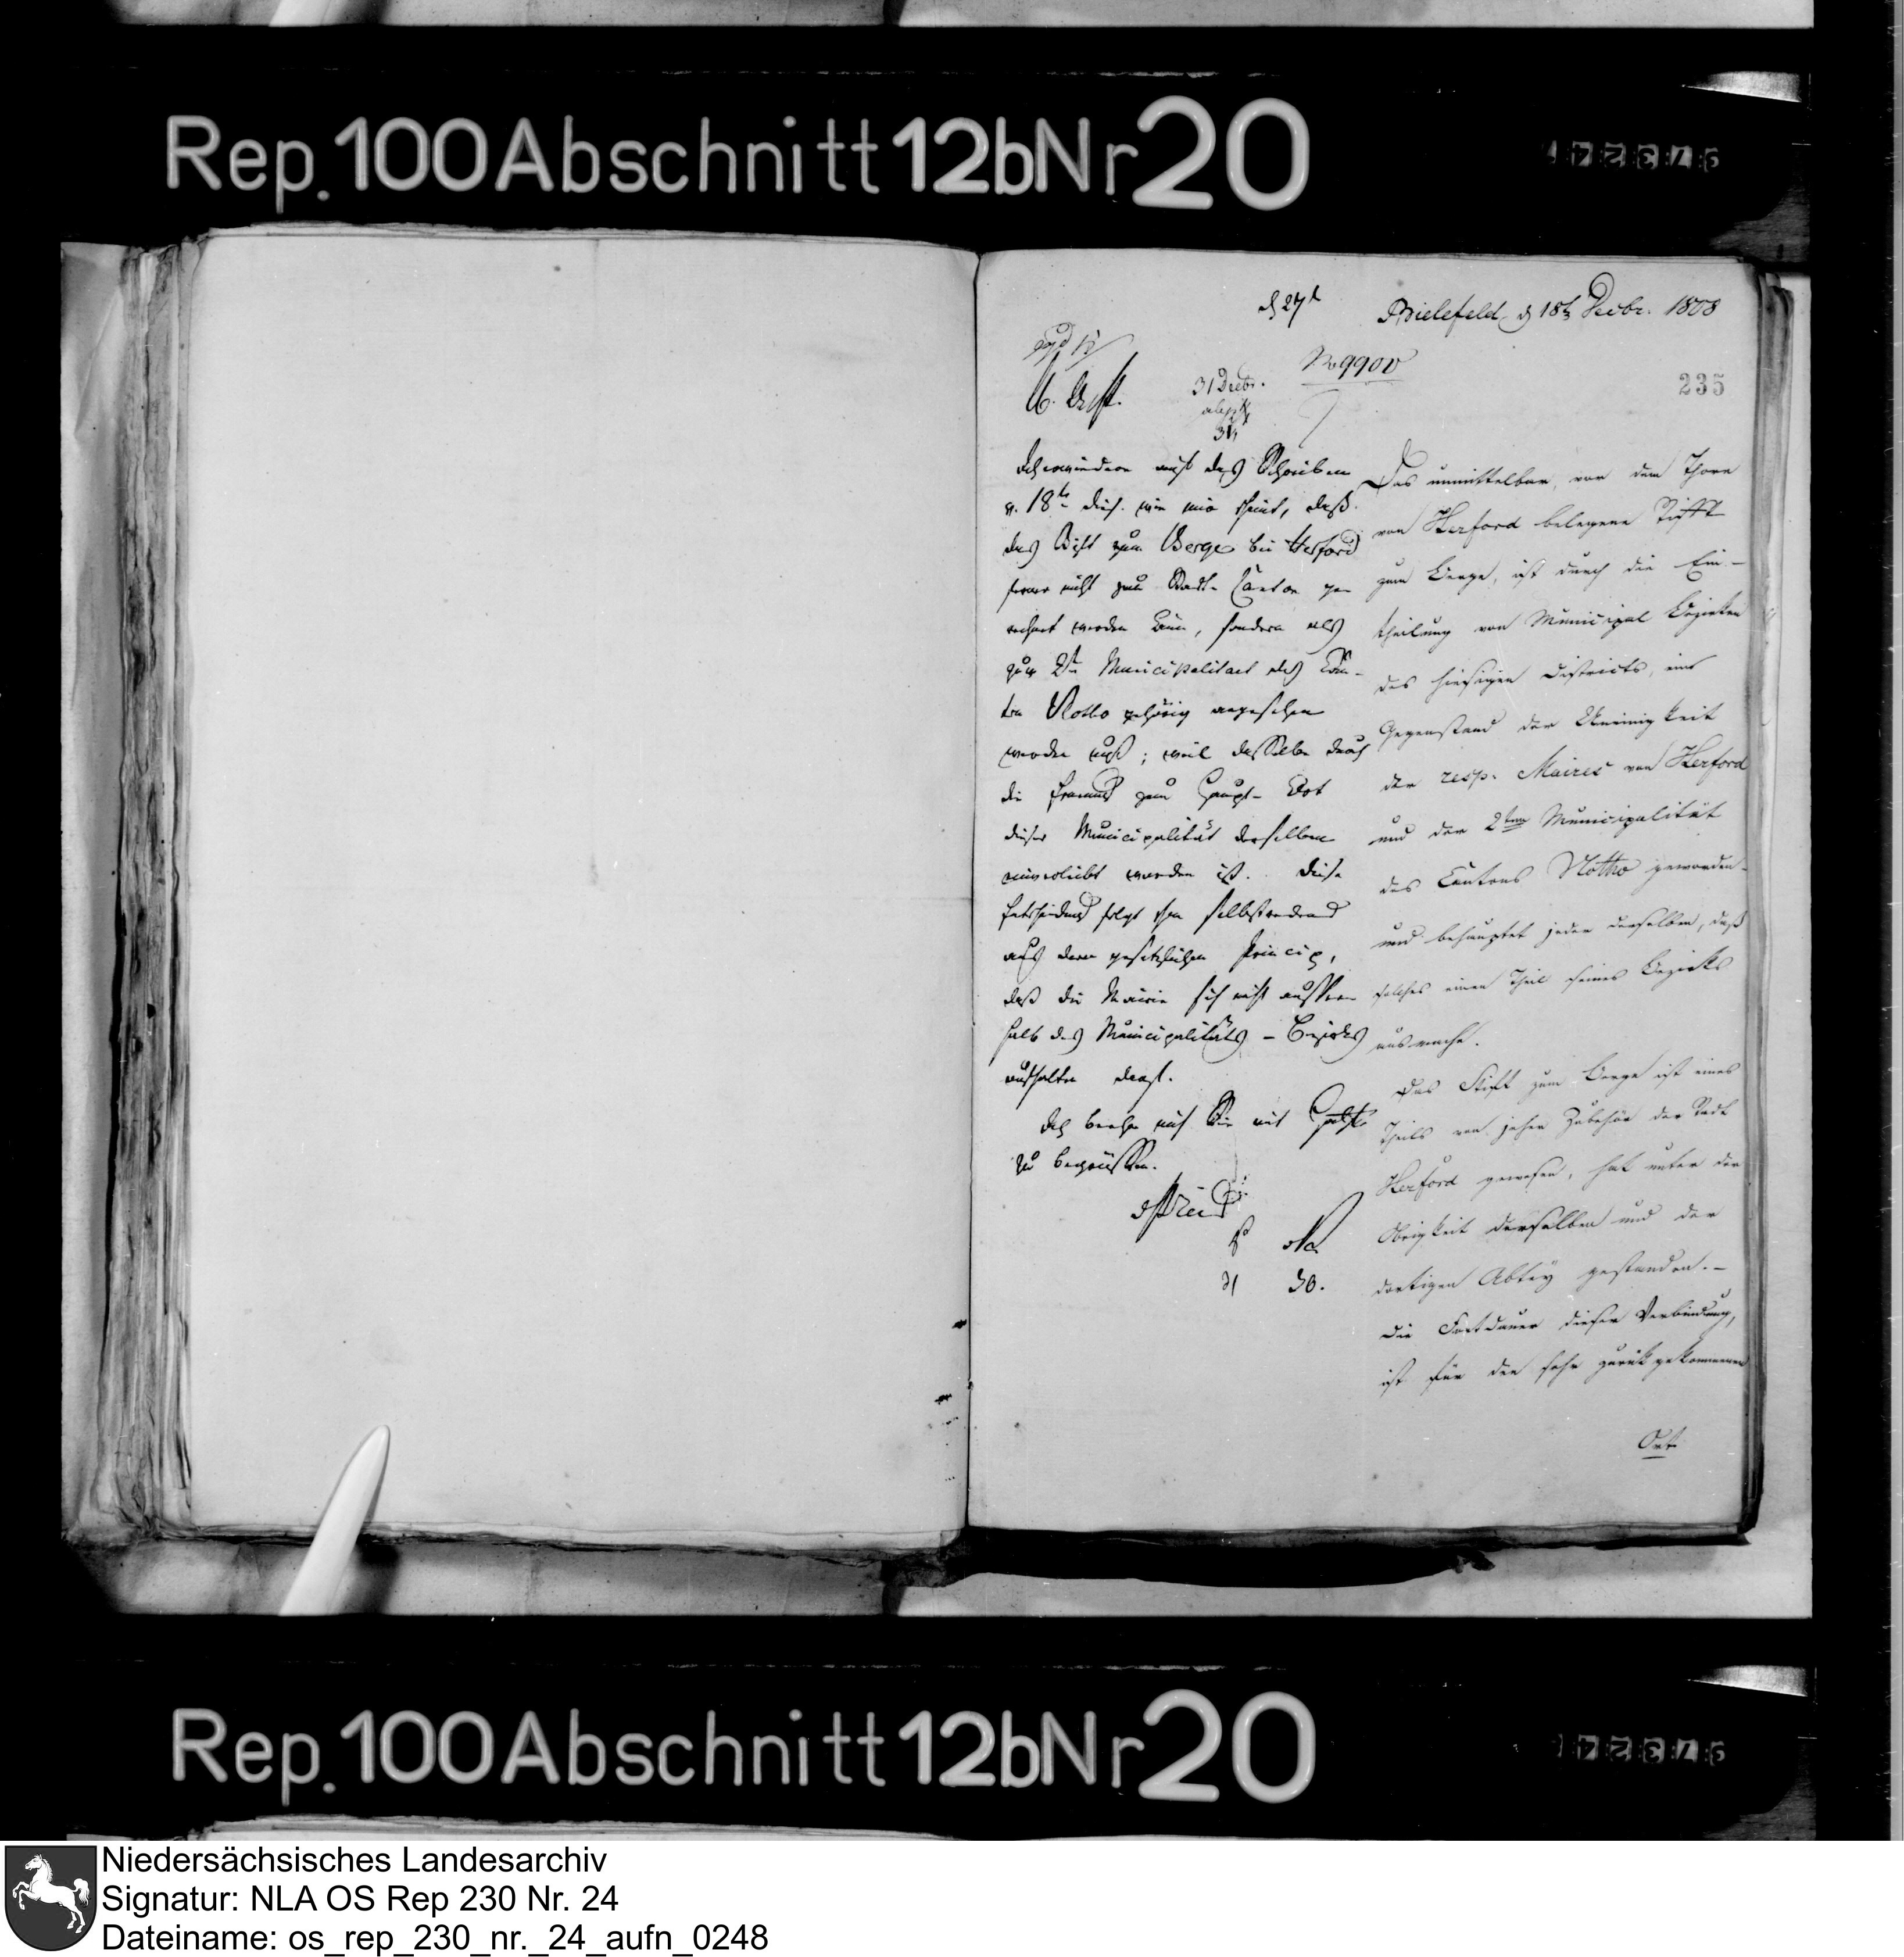 Rep. 100 Abschnitt 12b Nr 20
d 27t
Bielefeld d 18t Decbr. 1808
No 9900
235
31 Decbr.
Ich erwiedere auf das Schreiben
v. 18ten dies. wie mir scheint, daß
das Stift zum Berge bei Herford
ferner nicht zum Stadt-Canton ge-
rechnet werden kann, sondern als
zur 2ten Municipalitaet des Can-
tons Vlotho gehörig angesehen
werden muß; weil dasselbe durch
die zum Haupt-Ort
dieser Municipalität derselben
einverleibt worden ist. Diese
Entscheidung folgt schon selbstredend
aus dem gesetzlichen Princip,
daß die Mairie sich nicht ausser-
halb des Municipalitäts-Bezirks
aufhalten darf.
Ich beehre mich Sie mit
zu begrüssen.
31 30.
Das unmittelbar vor dem Thore
von Herford belegene Stifft
zum Berge, ist durch die Ein-
theilung von Municipal Bezirken
des hiesigen Districts, ein
Gegenstand der Uneinigkeit
der resp. Maires von Herford
und der 2ten Municipalität
des Cantons Vlotho geworden
und behauptet jeder derselben, daß
solches einen Theil seines Bezirks
ausmache.
Das Stift zum Berge ist eines
Theils von jeher Zubehör der Stadt
Herford gewesen, hat unter der
Obrigkeit derselben und der
dortigen Abtey gestanden. –
Die Fortdauer dieser Verbindung,
ist für den sehr zurükgekommenen
Ort
Rep. 100 Abschnitt 12b Nr 20
Niedersächsisches Landesarchiv
Signatur: NLA OS Rep 230 Nr. 24
Dateiname: os_rep_230_nr._24_aufn_0248